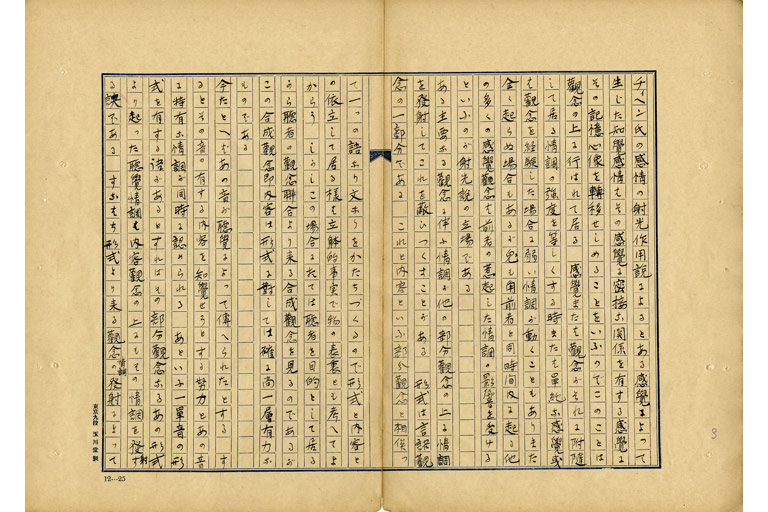 チィヘン氏の感情の射光作用說によるとある感覺によつて
生じた知覺感情もその感覺に密接な関係を有する感覺に
その記憶心像を轉移せしめることをいふのでこのことは
觀念の上に行はれて居る 感覺または觀念がそれに附随
して居る情調の強度を等しくする時または單純な感覺或
は觀念を経驗した場合に弱い情調が動くこともありまた
全く起らぬ場合もあるが兔も角前者と同時間に起る他
の多くの感覺觀念も前者の惹起した情調の影響を受ける
といふのが射光說の立場である
ある主要なる觀念に伴ふ情調が他の部分觀念の上に情調
を發射してこれを蔽ひつくすことがある 形式は言語觀
念の一部分である これと内容といふ部分觀念と相俟つ
て一つの語なり文なりをかたちづくるので形式と内容と
の依立して居る様は立體的事実で物の表裏とも考へてよ
からう しかしこの場合に於ては聴者を目的として居る
から聴者の觀念聯合より来る合成觀念を見るのであるが
この合成觀念即内容は形式に對しては確に尚一層有力な
ものである
今たとへばあの音が聴覺によつて傳へられたとする す
るとその音の有する内容を知覺せうとする努力とあの音
に特有な情調が同時に認められる あといふ一單音の形
式を有する語があるとすればその部分觀念なるあの形式
より起つた聴覺情調は内容觀念の上にもその情調を發射す
る訣である すなはち形式より来る觀念の情調の發射によつて
東京九段 玉川堂製
12…25
3